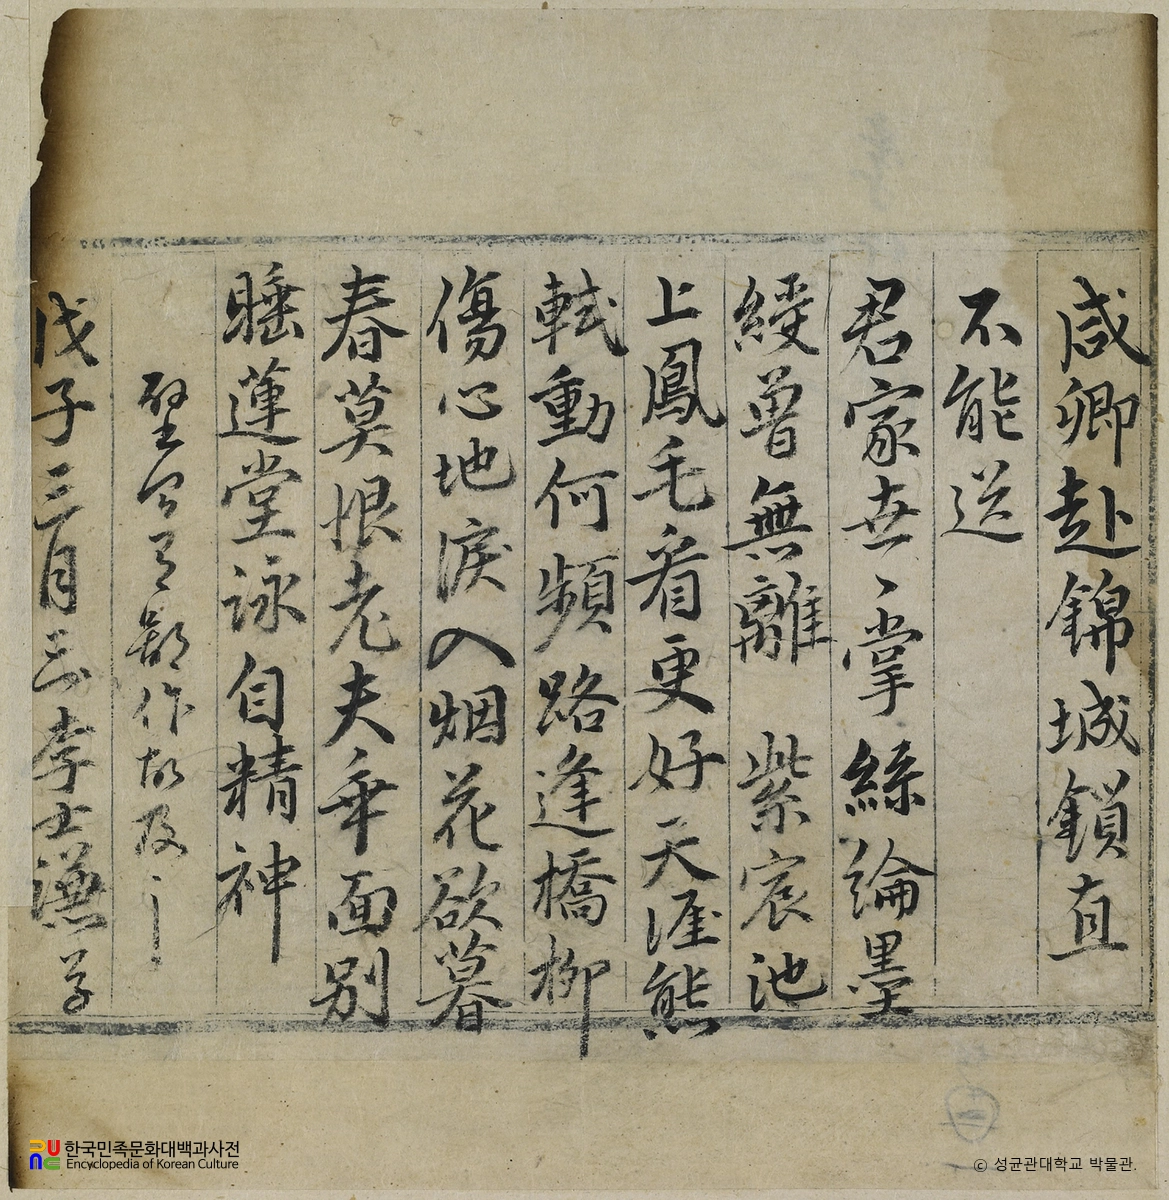 咸卿赴錦城鎖直
不能送
君家世〻掌絲綸墨
綬曾無離 紫宸池
上鳳毛看更好天涯熊
軾動何頻路逢橋柳
傷心地淚入烟花欲暮
春莫恨老夫乖面別
睡蓮堂詠自精神
堅 作故及之
戊子三月 李士謙
한국민족문화대백과사전
Encyclopedia of Korean Culture
© 성균관대학교 박물관.